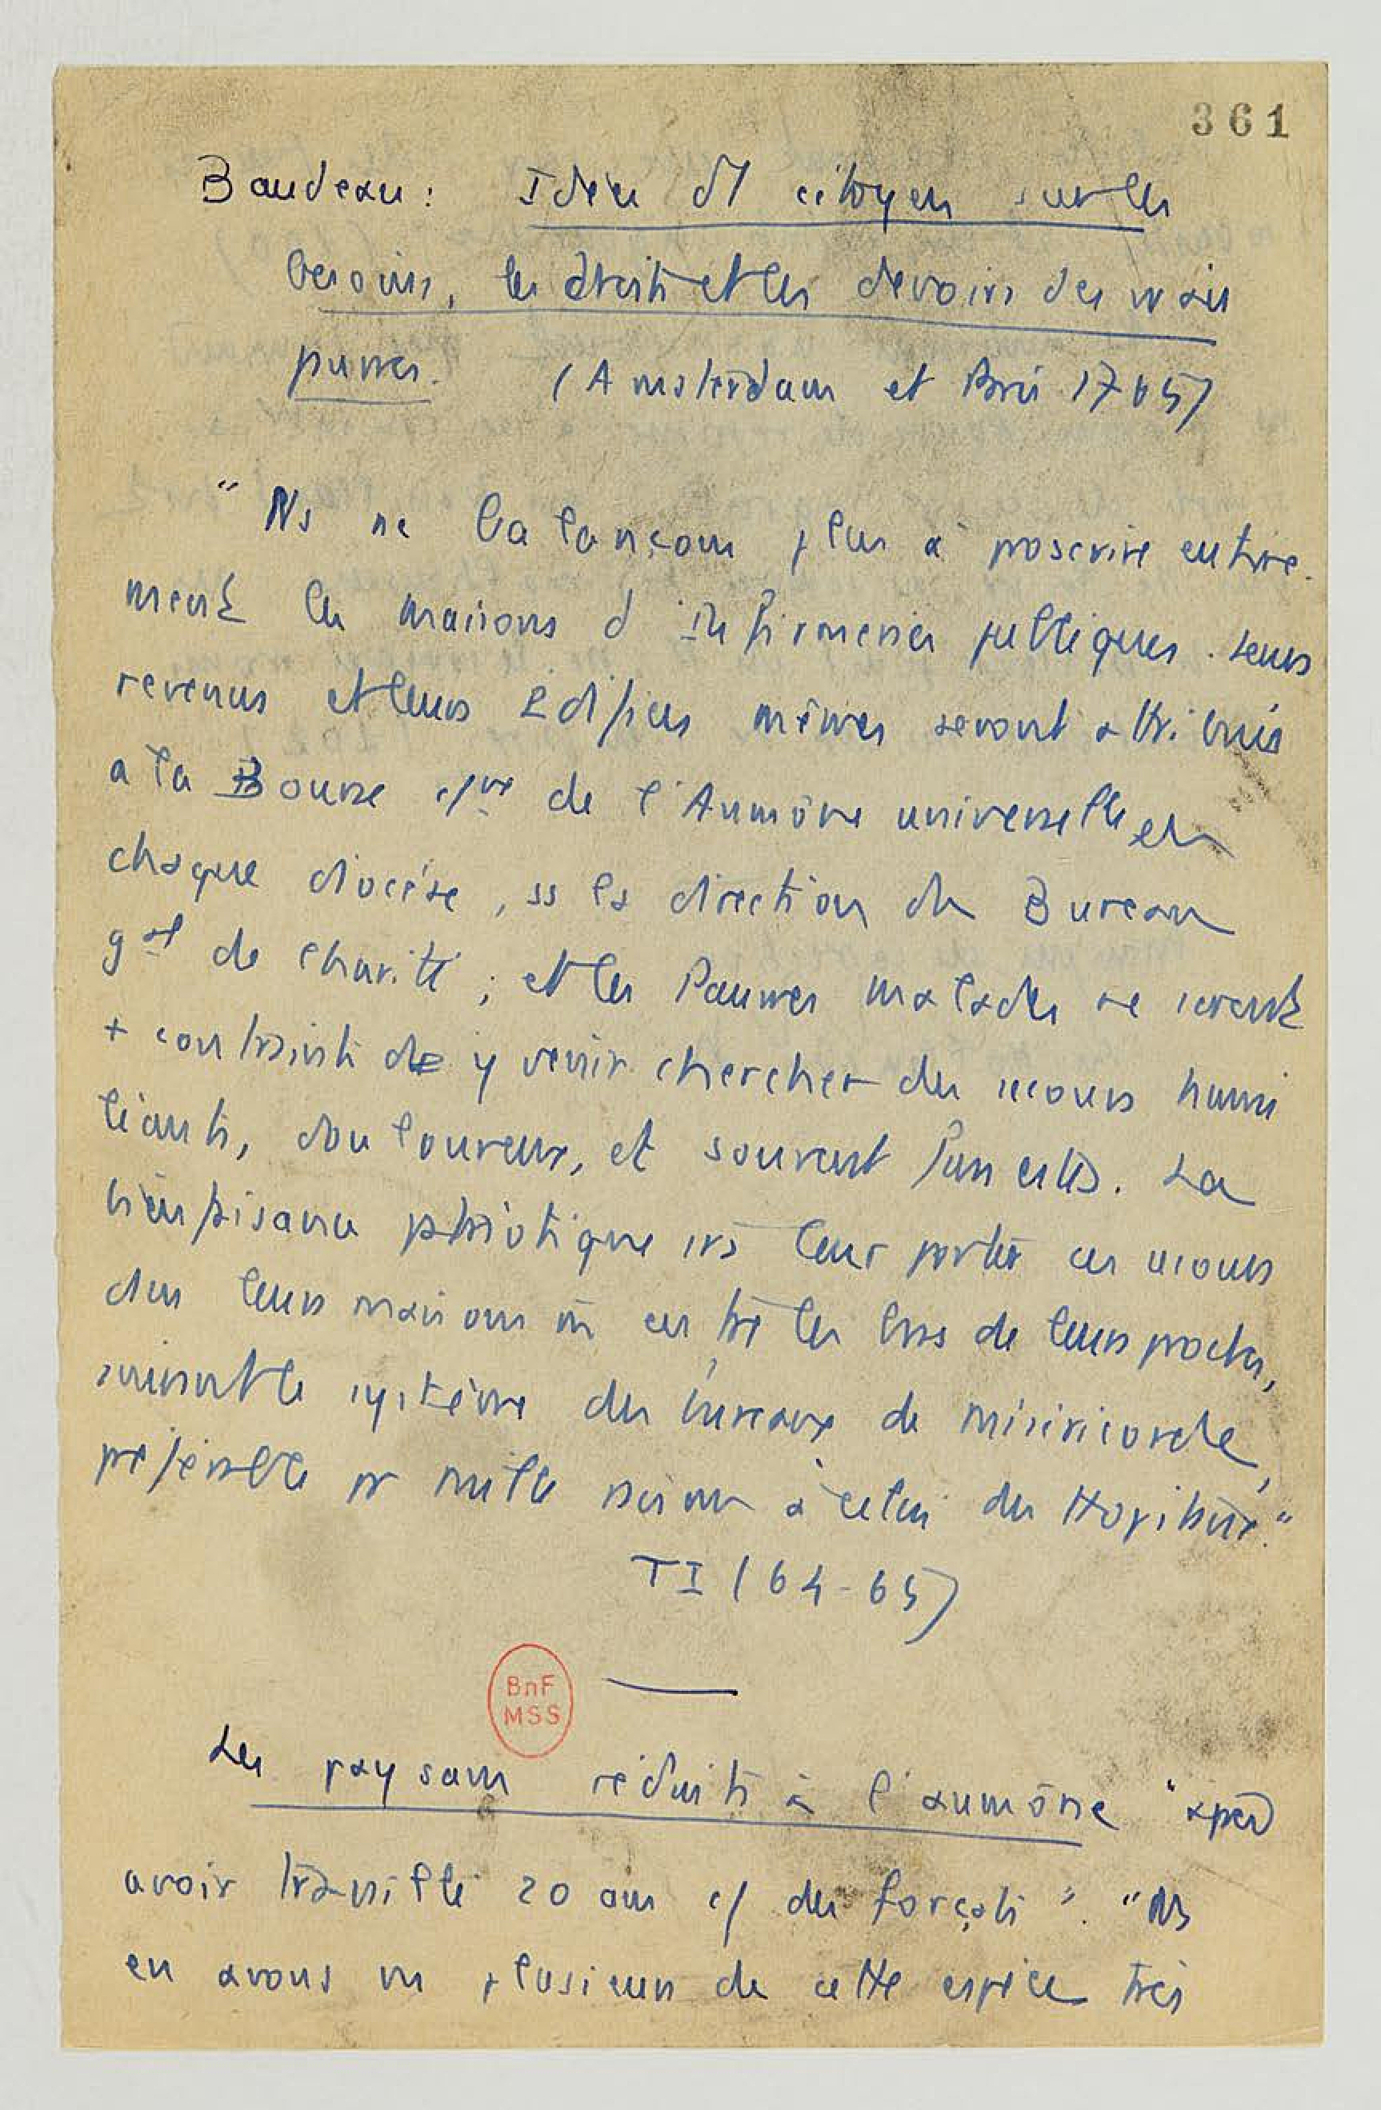 361
Baudeau : Idées d'1 citoyen sur les
besoins, les droits et les devoirs des vrais
pauvres. (Amsterdam et Paris 1765)
" Ns ne balançons plus à proscrire entière-
ment les maisons d'infirmeries publiques. Leurs
revenus et leurs Edifices mêmes seront attribués
a la Bourse de l'Aumône universelle en
chaque diocèse, ss la direction du Bureau
gal de charité ; et les Pauvres malades ne seront
+ contraints de y venir chercher des secours humi
liants, douloureux, et souvent funestes. La
bienfaisance patriotique ira leur porter ces secours
dans leurs maisons entre les bras de leurs proches,
suivant le système des bureaux de miséricorde,
préférable pr mille raisons à celui des Hopitaux."
TI (64-65)
BnF
MSS
Les paysans réduits à l'aumône "après
avoir travaillé 20 ans c/ des forçats". "Ns
en avons vu plusieurs de cette espèce très